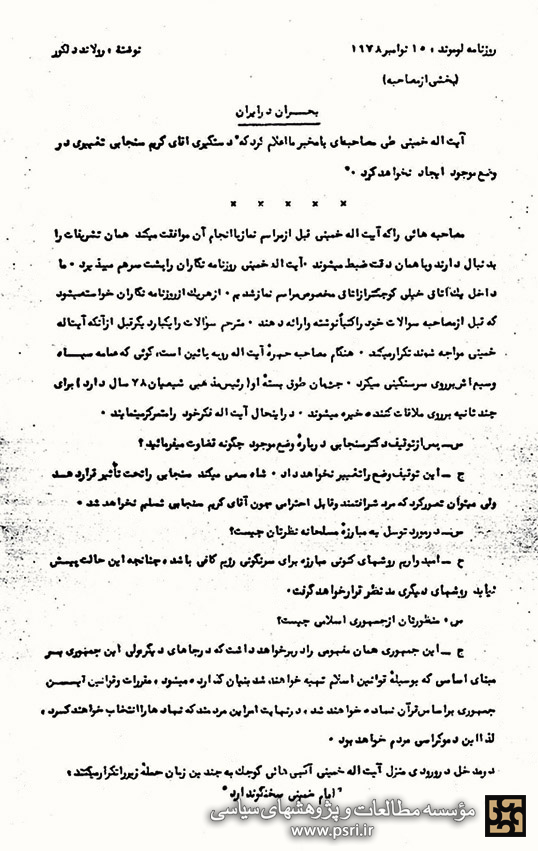 روزنامه لوموند، ۱۵ نوامبر ۱۹۷۸ نوشتهٔ: رولاند دلکور
(بخشی از مصاحبه)
بحران در ایران
آیت اله خمینی طی مصاحبه‌ای با مخبر ما اعلام کرد که "دستگیری اقای کریم سنجابی تغییری در
وضع موجود ایجاد نخواهد کرد."
× × × × ×
مصاحبه هائی را که آیت اله خمینی قبل از مراسم نماز با انجام آن موافقت میکند همان تشریفات را
بدنبال دارند و با همان دقت ضبط میشوند. آیت اله خمینی روزنامه نگاران را پشت سرهم میپذیرد. ما
داخل یک اتاق خیلی کوچکتر از اتاق مخصوص مراسم نماز شدیم. از هر یک از روزنامه نگاران خواسته میشود
که قبل از مصاحبه سوالات خود را کتباً نوشته و ارائه دهند. مترجم سؤالات را یکبار دیگر قبل از آنکه آیت اله
خمینی مواجه شوند تکرار میکند. هنگام مصاحبه چهرهٔ آیت اله رو به پائین است، گوئی که عمامه سیاه
وسیم اش بر روی سر سنگینی میکرد. چشمان طوق بستهٔ او (رئیس مذهبی شیعیان ۷۸ سال دارد) برای
چند ثانیه بر روی ملاقات کننده خیره میشوند. در اینحال آیت اله فکر خود را متمرکز مینمایند.
س ــ پس از توقیف دکتر سنجابی دربارهٔ وضع موجود چگونه قضاوت میفرمائید؟
ج ــ این توقیف وضع را تغییر نخواهد داد. شاه سعی میکند سنجابی را تحت تأثیر قرار دهد
ولی میتوان تصور کرد که مرد شرافتمند و قابل احترامی چون آقای کریم سنجابی تسلیم نخواهد شد.
س ــ در مورد توسل به مبارزهٔ مسلحانه نظرتان چیست؟
ج ــ امیدواریم روشهای کنونی مبارزه برای سرنگونی رژیم کافی باشد، چنانچه این حالت پیش
نیاید روشهای دیگری مد نظر قرار خواهد گرفت.
س. منظورتان از جمهوری اسلامی چیست؟
ج ــ این جمهوری همان مفهومی را در بر خواهد داشت که در جاهای دیگر ولی این جمهوری بر
مبنای اساسی که بوسیلهٔ قوانین اسلام تهیه خواهند شد بنیان گذارده میشود، مقررات و قوانین این
جمهوری بر اساس قرآن نهاده خواهند شد، در نهایت امر این مردمند که نهادها را انتخاب خواهند کرد،
لذا این دموکراسی مردم خواهد بود.
در مدخل در ورودی منزل آیت اله خمینی آگهی هائی کوچک به چندین زبان جملهٔ زیر را تکرار میکنند:
"امام خمینی سخنگو ندارد"
مؤسسه مطالعات و پژوهشهای سیاسی
www.psri.ir